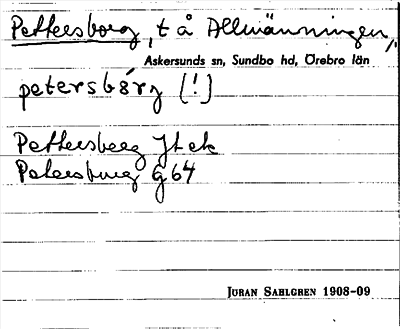 Pettersborg, t å Allmänningen,
Askersunds sn, Sundbo hd, Örebro län
petersbårg (!)
Pettersberg Jt ek
Petersburg G 64
JURAN SAHLGREN 1908-09